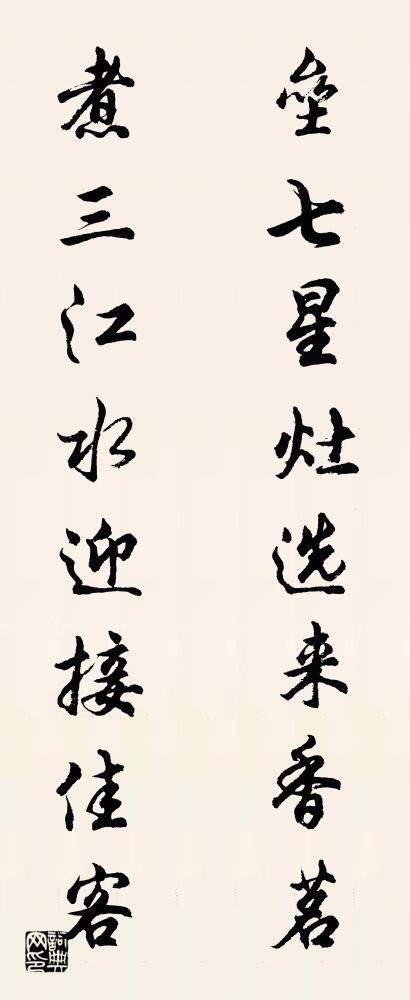 垒七星灶选来香茗
煮三江水迎接佳客